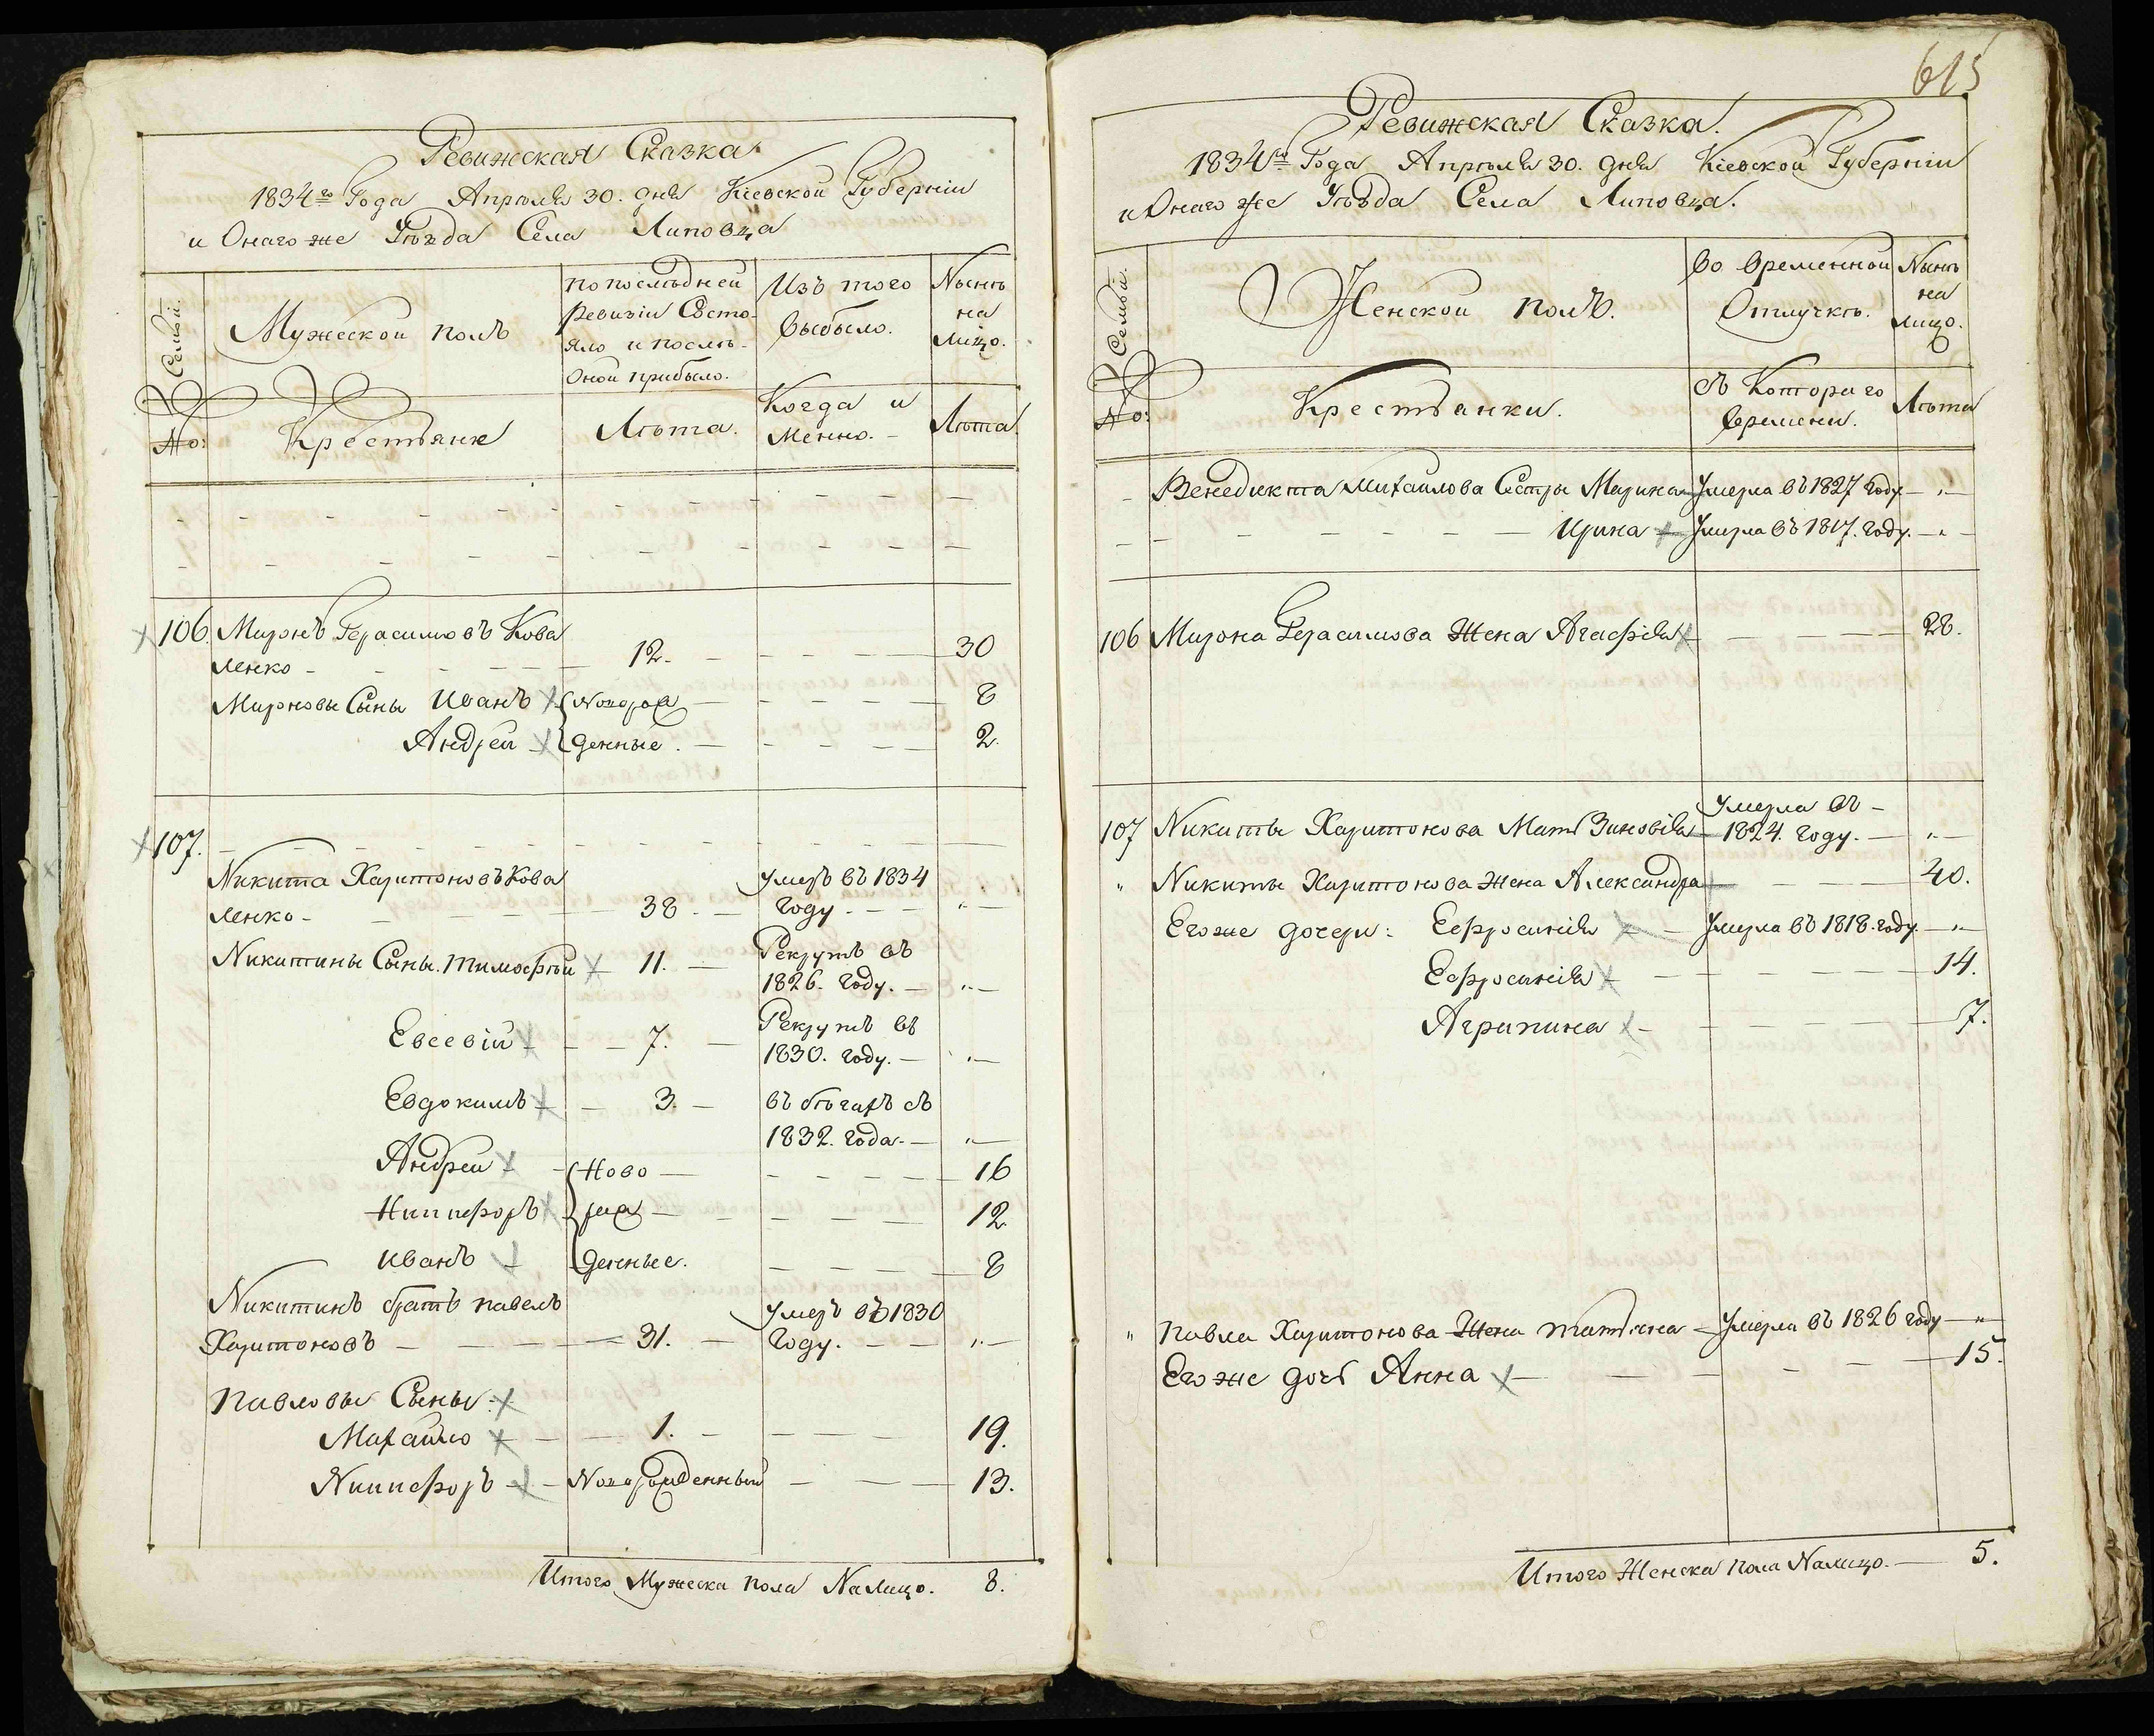 Ревижская Сказка.
1834го Года Апрѣля 30. дня Кіевской Губерніи
и Онаго же Уѣзда Села Липовца
№ Семьи.
Мужеской полъ
по послѣдней
Ревизіи Состо-
яло и послѣ-
Оной прибыло.
Изъ того
выбыло.
Nынѣ
на
лицо.
№:
Крестьяне
Лѣта.
Когда и
Менно.
Лѣта.
106. Миронъ Герасимовъ Кова
ленко - 12. 30
Мироновы Сыны Иванъ Новорож 8
Андрей денные. 2.
107.
Nикита Харитоновъ Кова Умеръ въ 1834
ленко - 38 - году. "
Nикитины Сыны. Тимофѣй 11. Рекрутъ въ
1826. году. "
Евсевій 7. Рекрутъ въ
1830. году. "
Евдокимъ 3. въ бѣгахъ съ
1832. года. "
Андрей Ново 16
Никифоръ рож 12
Иванъ денные. 8
Nикитинъ братъ павелъ Умеръ въ 1830
Харитоновъ - 31. году. "
Павловы Сыны:
Михайло 1. 19.
Nикифоръ Nоворожденный 13.
Итого Мужеска пола Nалицо. 8.
615
Ревижская Сказка.
1834го Года Апрѣля 30. дня Кіевской Губерніи
и Онаго же Уѣзда Села Липовца.
№ Семьи.
Женской полъ.
Во временной
Отлучкѣ.
Nынѣ
на
лицо.
№:
Крестьянки.
Съ Котораго
времени.
Лѣта
Венедикта Михайлова Сестры Марина Умерла въ 1827 году "
Ирина Умерла въ 1817. году. "
106 Мирона Герасимова Жена Агафія 28.
107 Nикиты Харитонова Мать Зиновія Умерла въ -
1824. году. "
" Nикиты Харитонова Жена Александра 40.
Его же дочери: Ефросинія Умерла въ 1818. году. "
Ефросинія 14.
Агрипина 7.
" Павла Харитонова Жена татьяна Умерла въ 1826 году "
Его же дочь Анна 15.
Итого Женска пола Nалицо. 5.